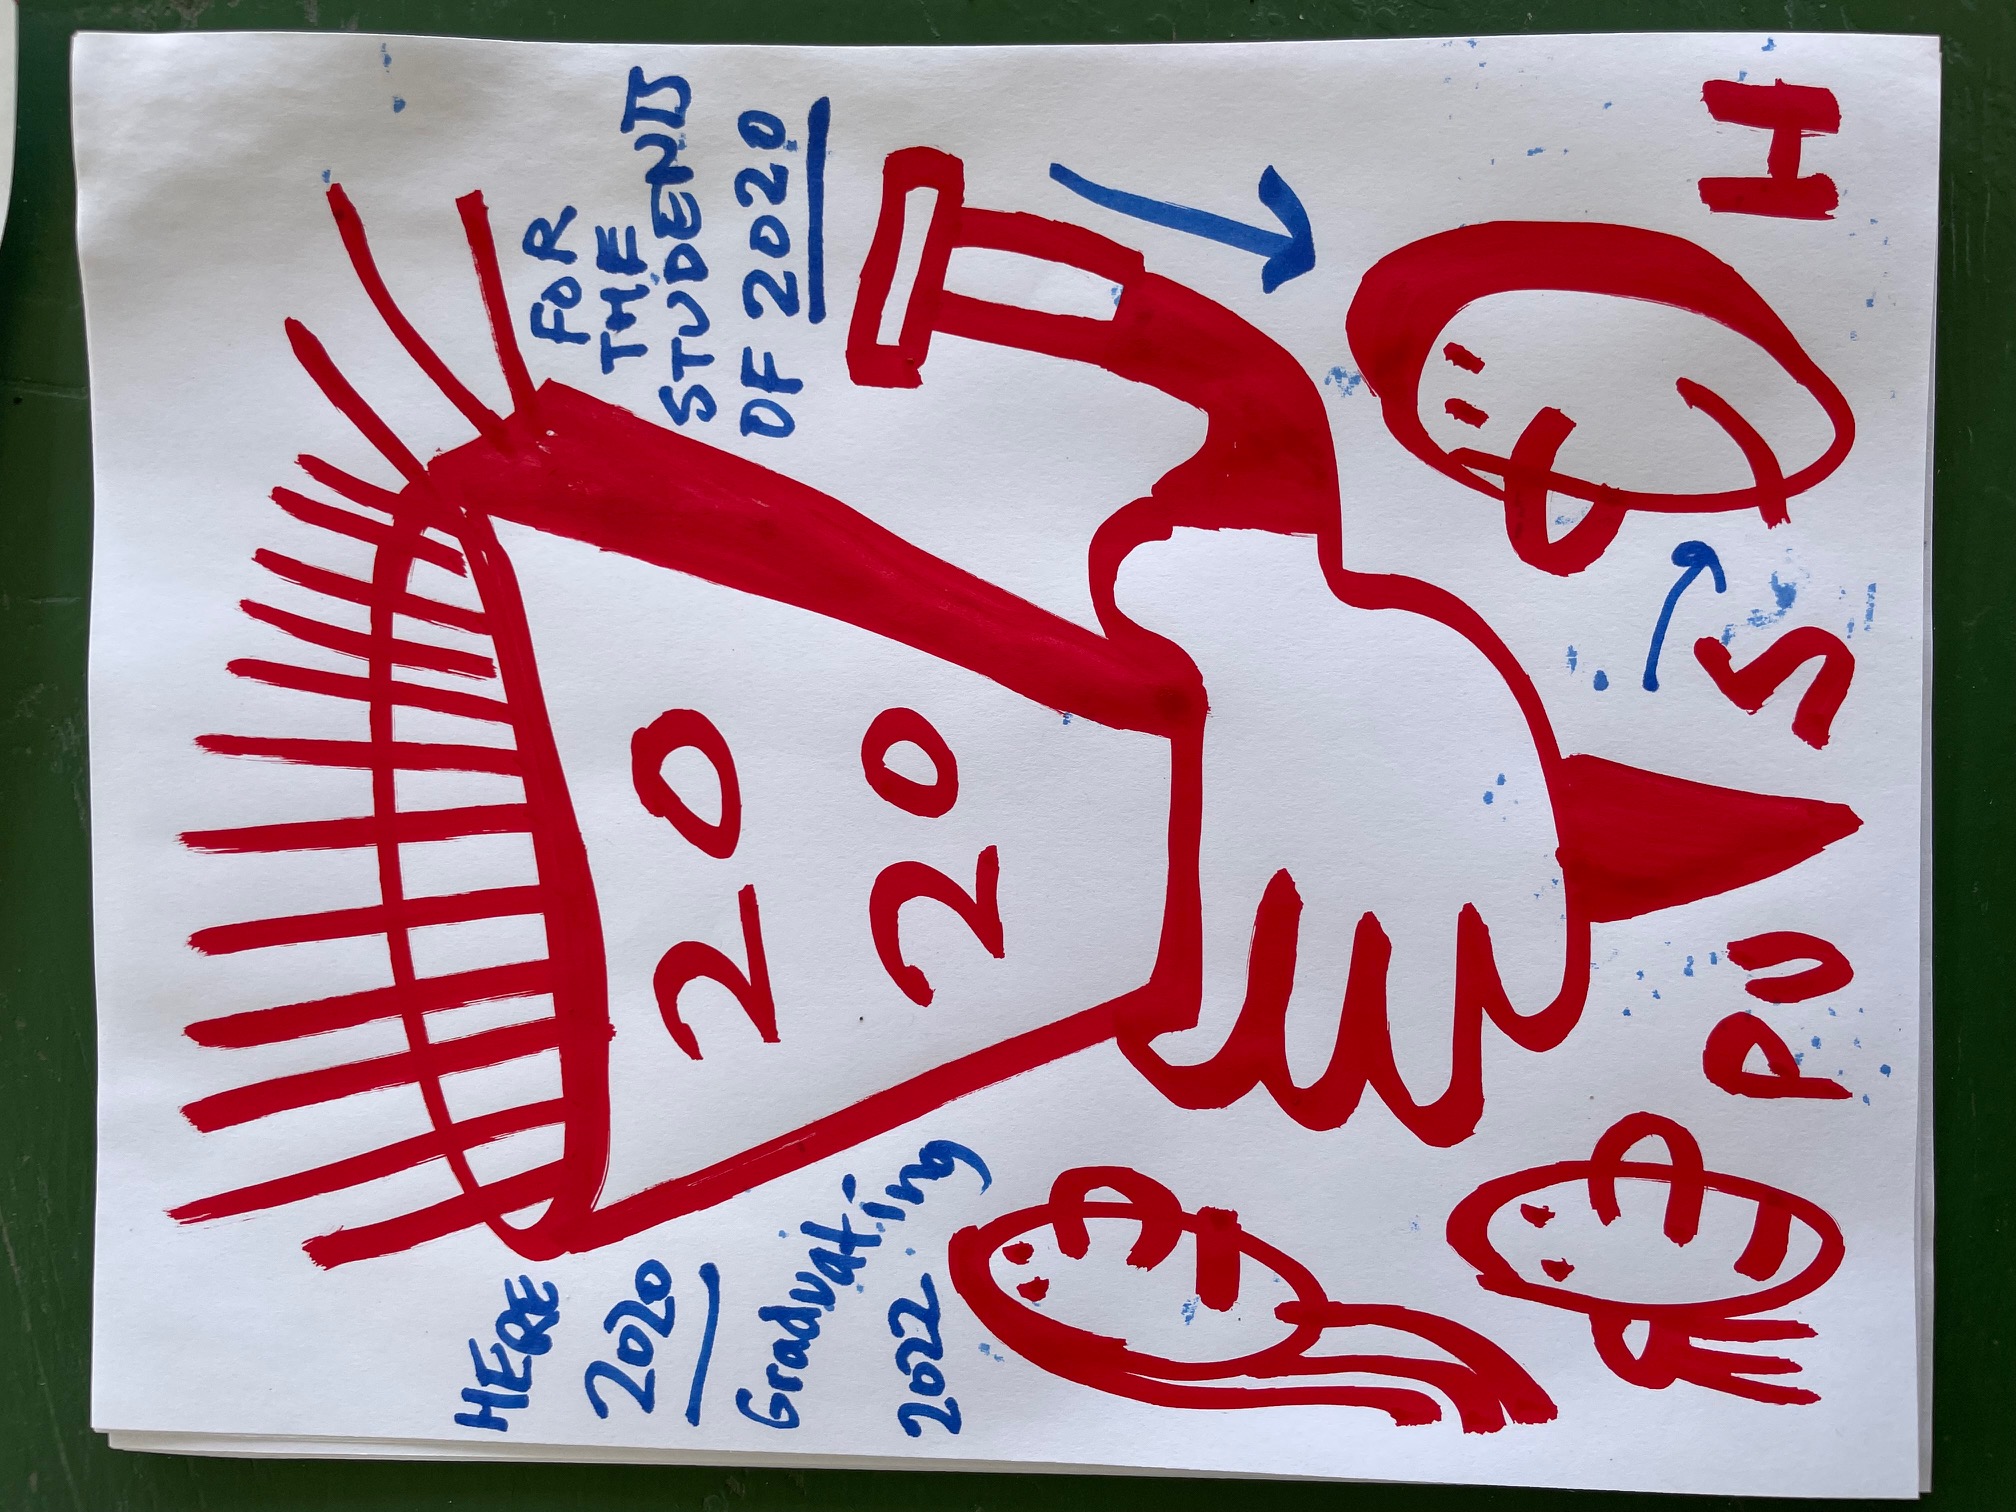 HERE
2020
Graduating
2022
20
20
FOR
THE
STUDENTS
OF 2020
PUSH